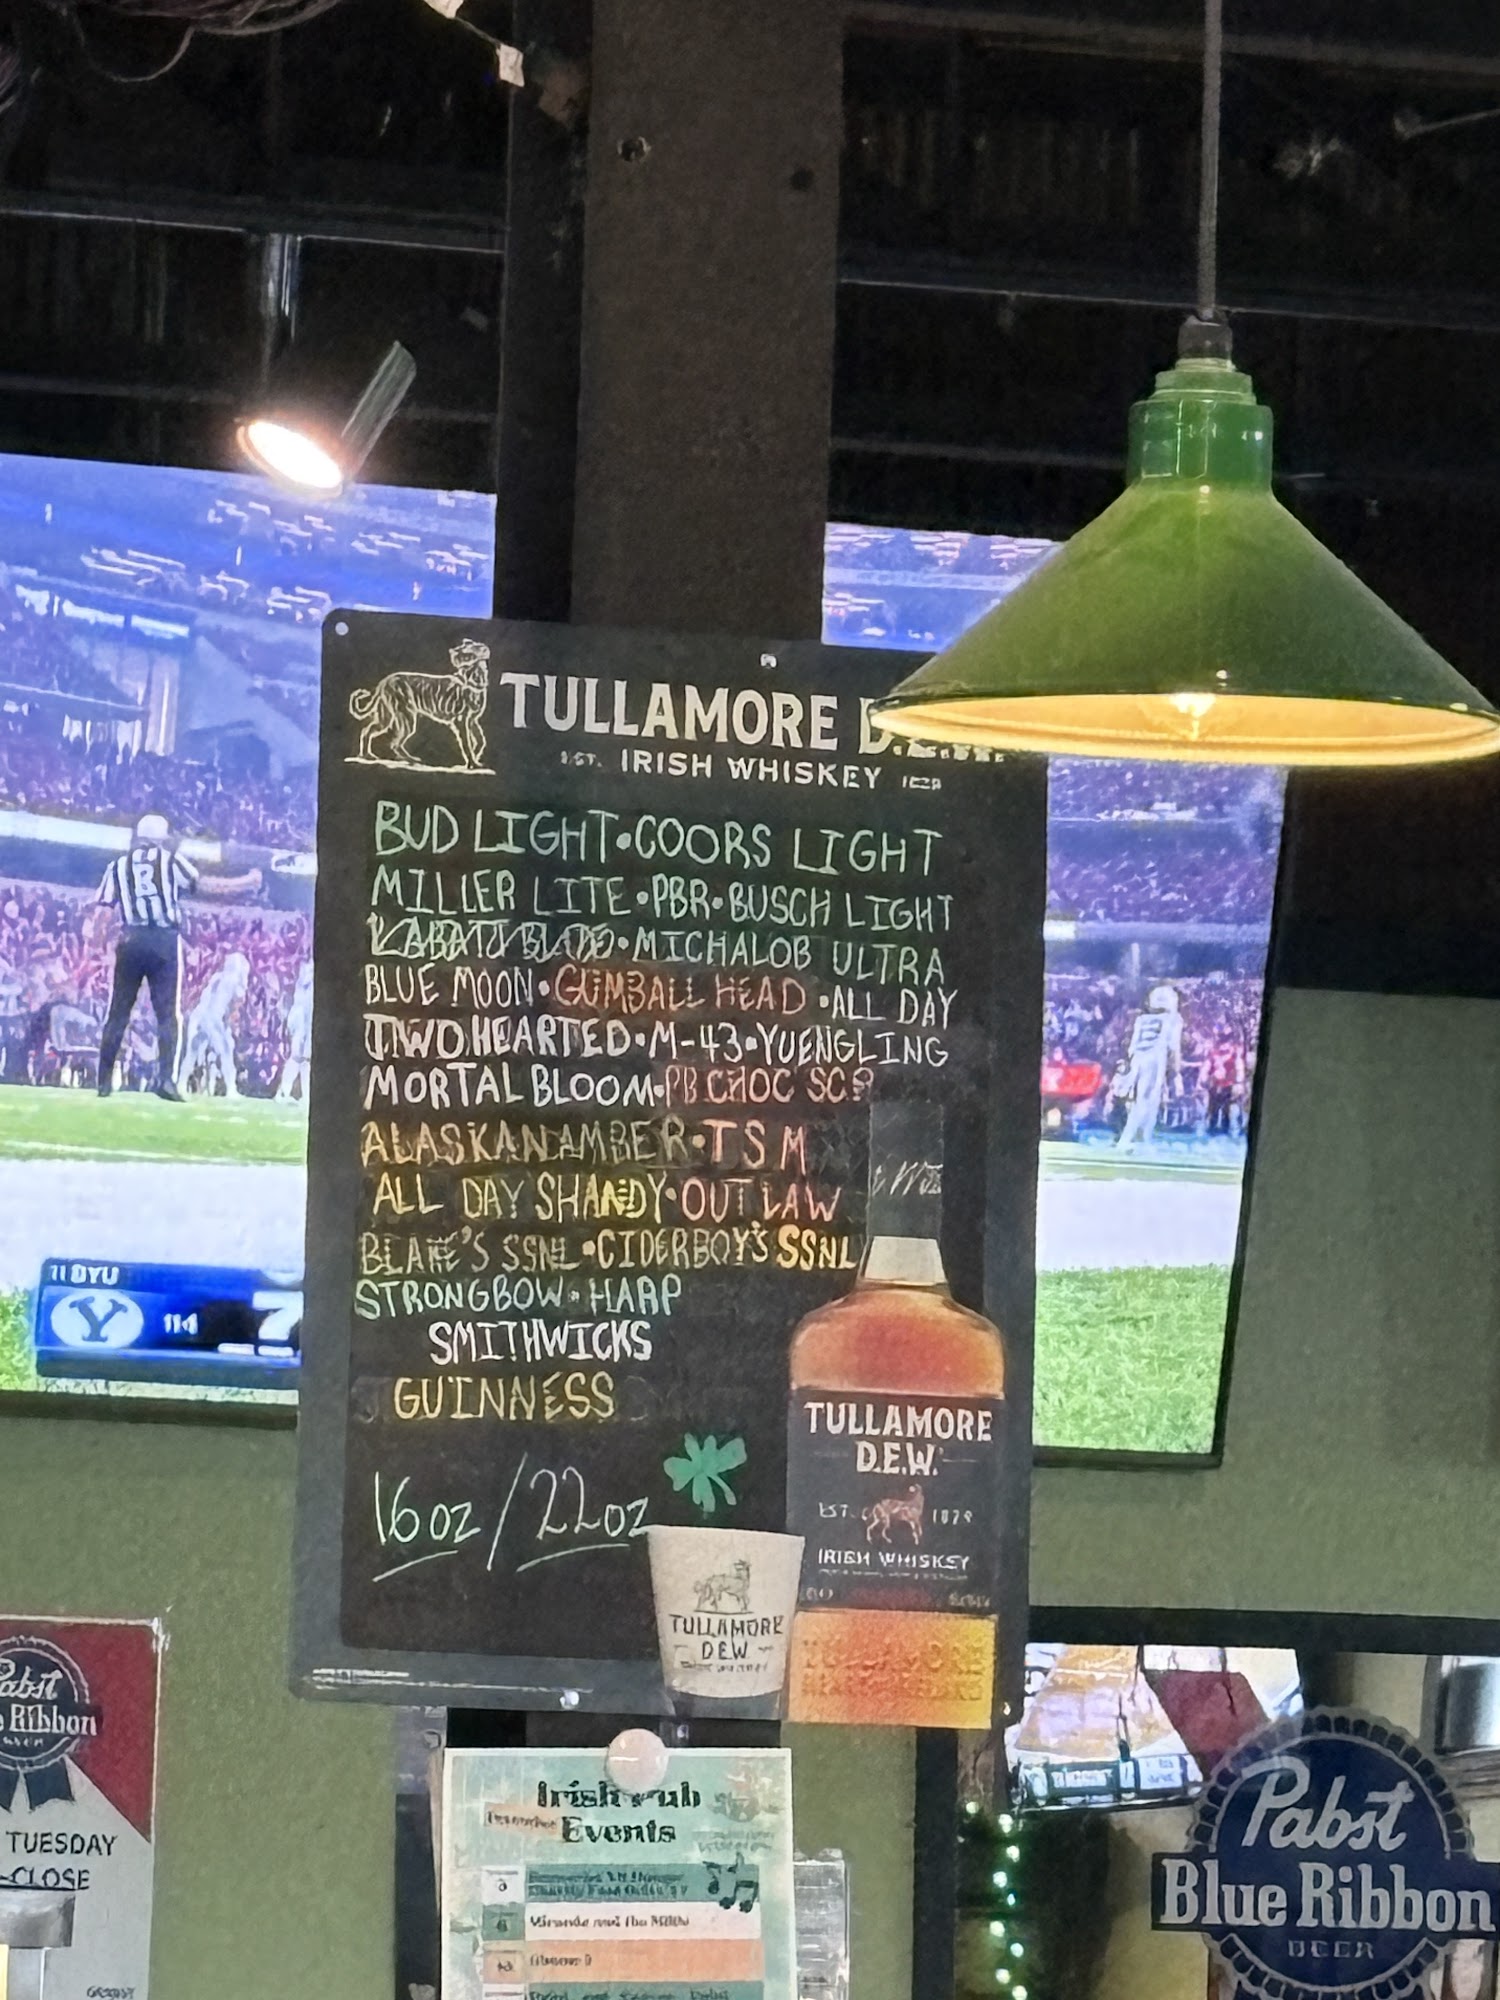 TULLAMORE D.E.W.
EST. IRISH WHISKEY
BUD LIGHT•COORS LIGHT
MILLER LITE•PBR•BUSCH LIGHT
LABATT BLUE•MICHALOB ULTRA
BLUE MOON•GUMBALL HEAD•ALL DAY
TWO HEARTED•M-43•YUENGLING
MORTAL BLOOM•PB CHOC
ALASKAN AMBER•TSM
ALL DAY SHANDY•OUTLAW
BLAKE'S SSNL•CIDERBOY'S SSNL
STRONGBOW•HARP
SMITHWICKS
GUINNESS
16oz/22oz
TULLAMORE
D.E.W.
EST. 1829
IRISH WHISKEY
TULLAMORE
DEW
11 BYU
Y
7
B
Pabst
Blue Ribbon
TUESDAY
CLOSE
Irish Pub
Events
Pabst
Blue Ribbon
BEER